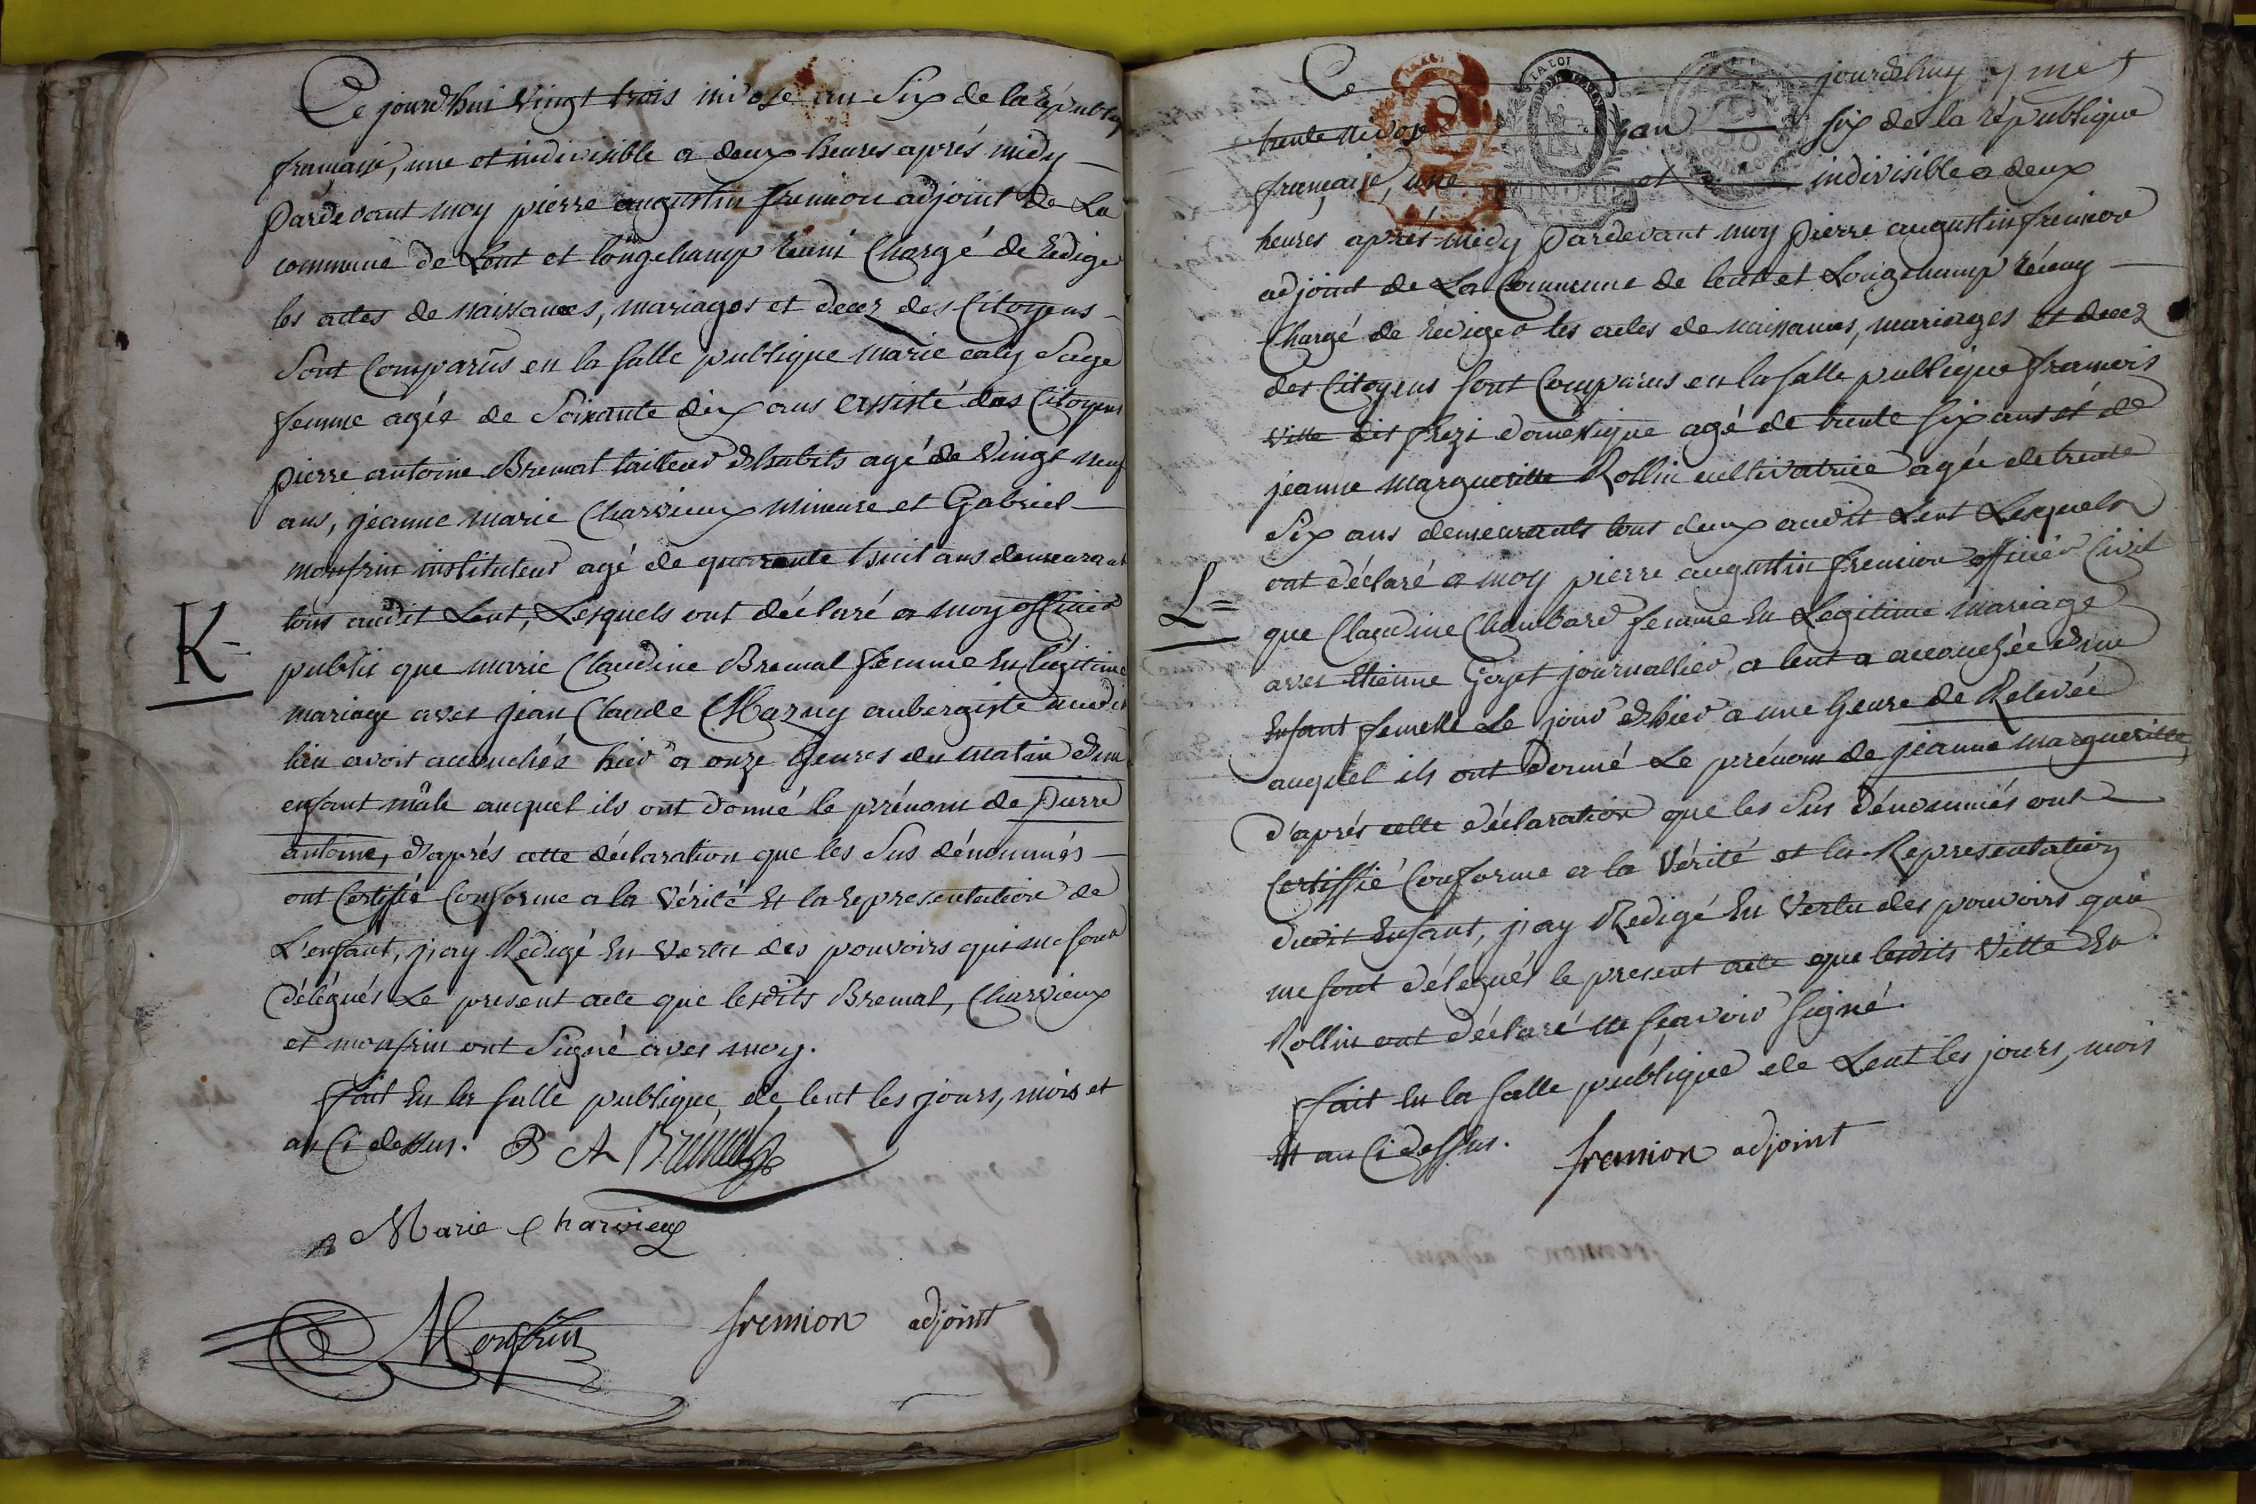 Ce jourd'hui vingt trois nivose an Six de la Republiq
française, une et indivisible a deux heures aprés midy
pardevant moy pierre augustin fremion adjoint de La
commune de Lent et longchamp reuni Chargé de Redigé
les actes de naissances, mariages et decez des Citoyens
Sont Comparûs en la salle publique marie caty Sage
femme agée de Soixante dix ans assisté des Citoyens
pierre antoine Bremal tailleur d'habits agé de Vingt neuf
ans, jeanne marie Charvieux mineure et Gabriel
monfrin instituteur agé de quarante huit ans demeurant
tous audit Lent, Lesquels ont déclaré a moy officier
public que marie Claudine Bremal femme En légitime
mariage avec jean Claude Mazuy aubergiste audit
lieu avoit accouchée hier a onze heures du matin d'un
enfant mâle auquel ils ont donné le prénom de pierre
antoine, d'aprés cette déclaration que les Sus dénommés
ont Certifié Conforme a la Vérité Et la representation de
L'enfant, j'ay Redigé En Vertu des pouvoirs qui me sont
délegués Le present acte que lesdits Bremal, Charvieux
et monfrin ont Signé avec moy.
fait En la salle publique, de lent les jours, mois et
an Ci dessus. P A Brémal
Marie Charvieux
Monfrin fremion adjoint
K
Ce jourd'huy
trente nivose an six de la république
française, une et indivisible a deux
heures aprés midy pardevant moy pierre augustin fremion
adjoint de La Commune de lent et Longchamp réuny
Chargé de rédiger les actes de naissances, mariages et decez
des Citoyens sont Comparus en la salle publique francois
Ville dit domestique agé de trente six ans et de
jeanne margueritte Rollin cultivatrice agée de trente
Six ans demeurants tous deux audit Lent Lesquels
ont déclaré a moy pierre augustin fremion officier Civil
que Claudine Chambard femme En Legitime mariage
avec Etienne Goyet journallier a lent a accouchée d'un
Enfant femelle Le jour d'hier a une heure de Relevée
auquel ils ont donné Le prénom de jeanne margueritte,
d'aprés cette déclaration que les Sus dénommés ont
Certiffié Conforme a la Vérité et la Representation
dudit Enfant, j'ay Redigé En Vertu des pouvoirs qui
me sont délegués le present acte que lesdits Ville Et
Rollin ont déclaré ne sçavoir signé.
fait En la salle publique de Lent les jours, mois
Et an Ci dessus. fremion adjoint
L=
LA LOI